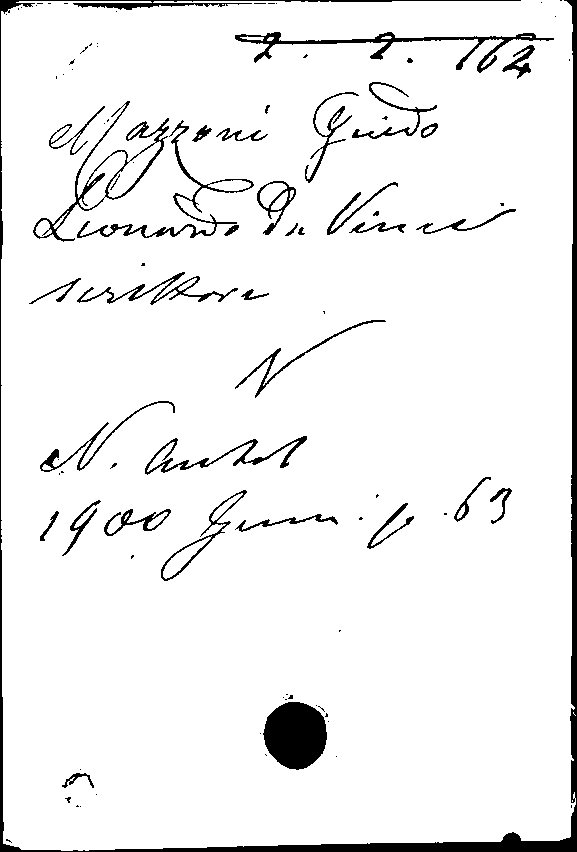 2. 2. 162
Mazzoni Guido
Leonardo da Vinci
scrittore
N
N. Antol
1900 Genn. p. 63